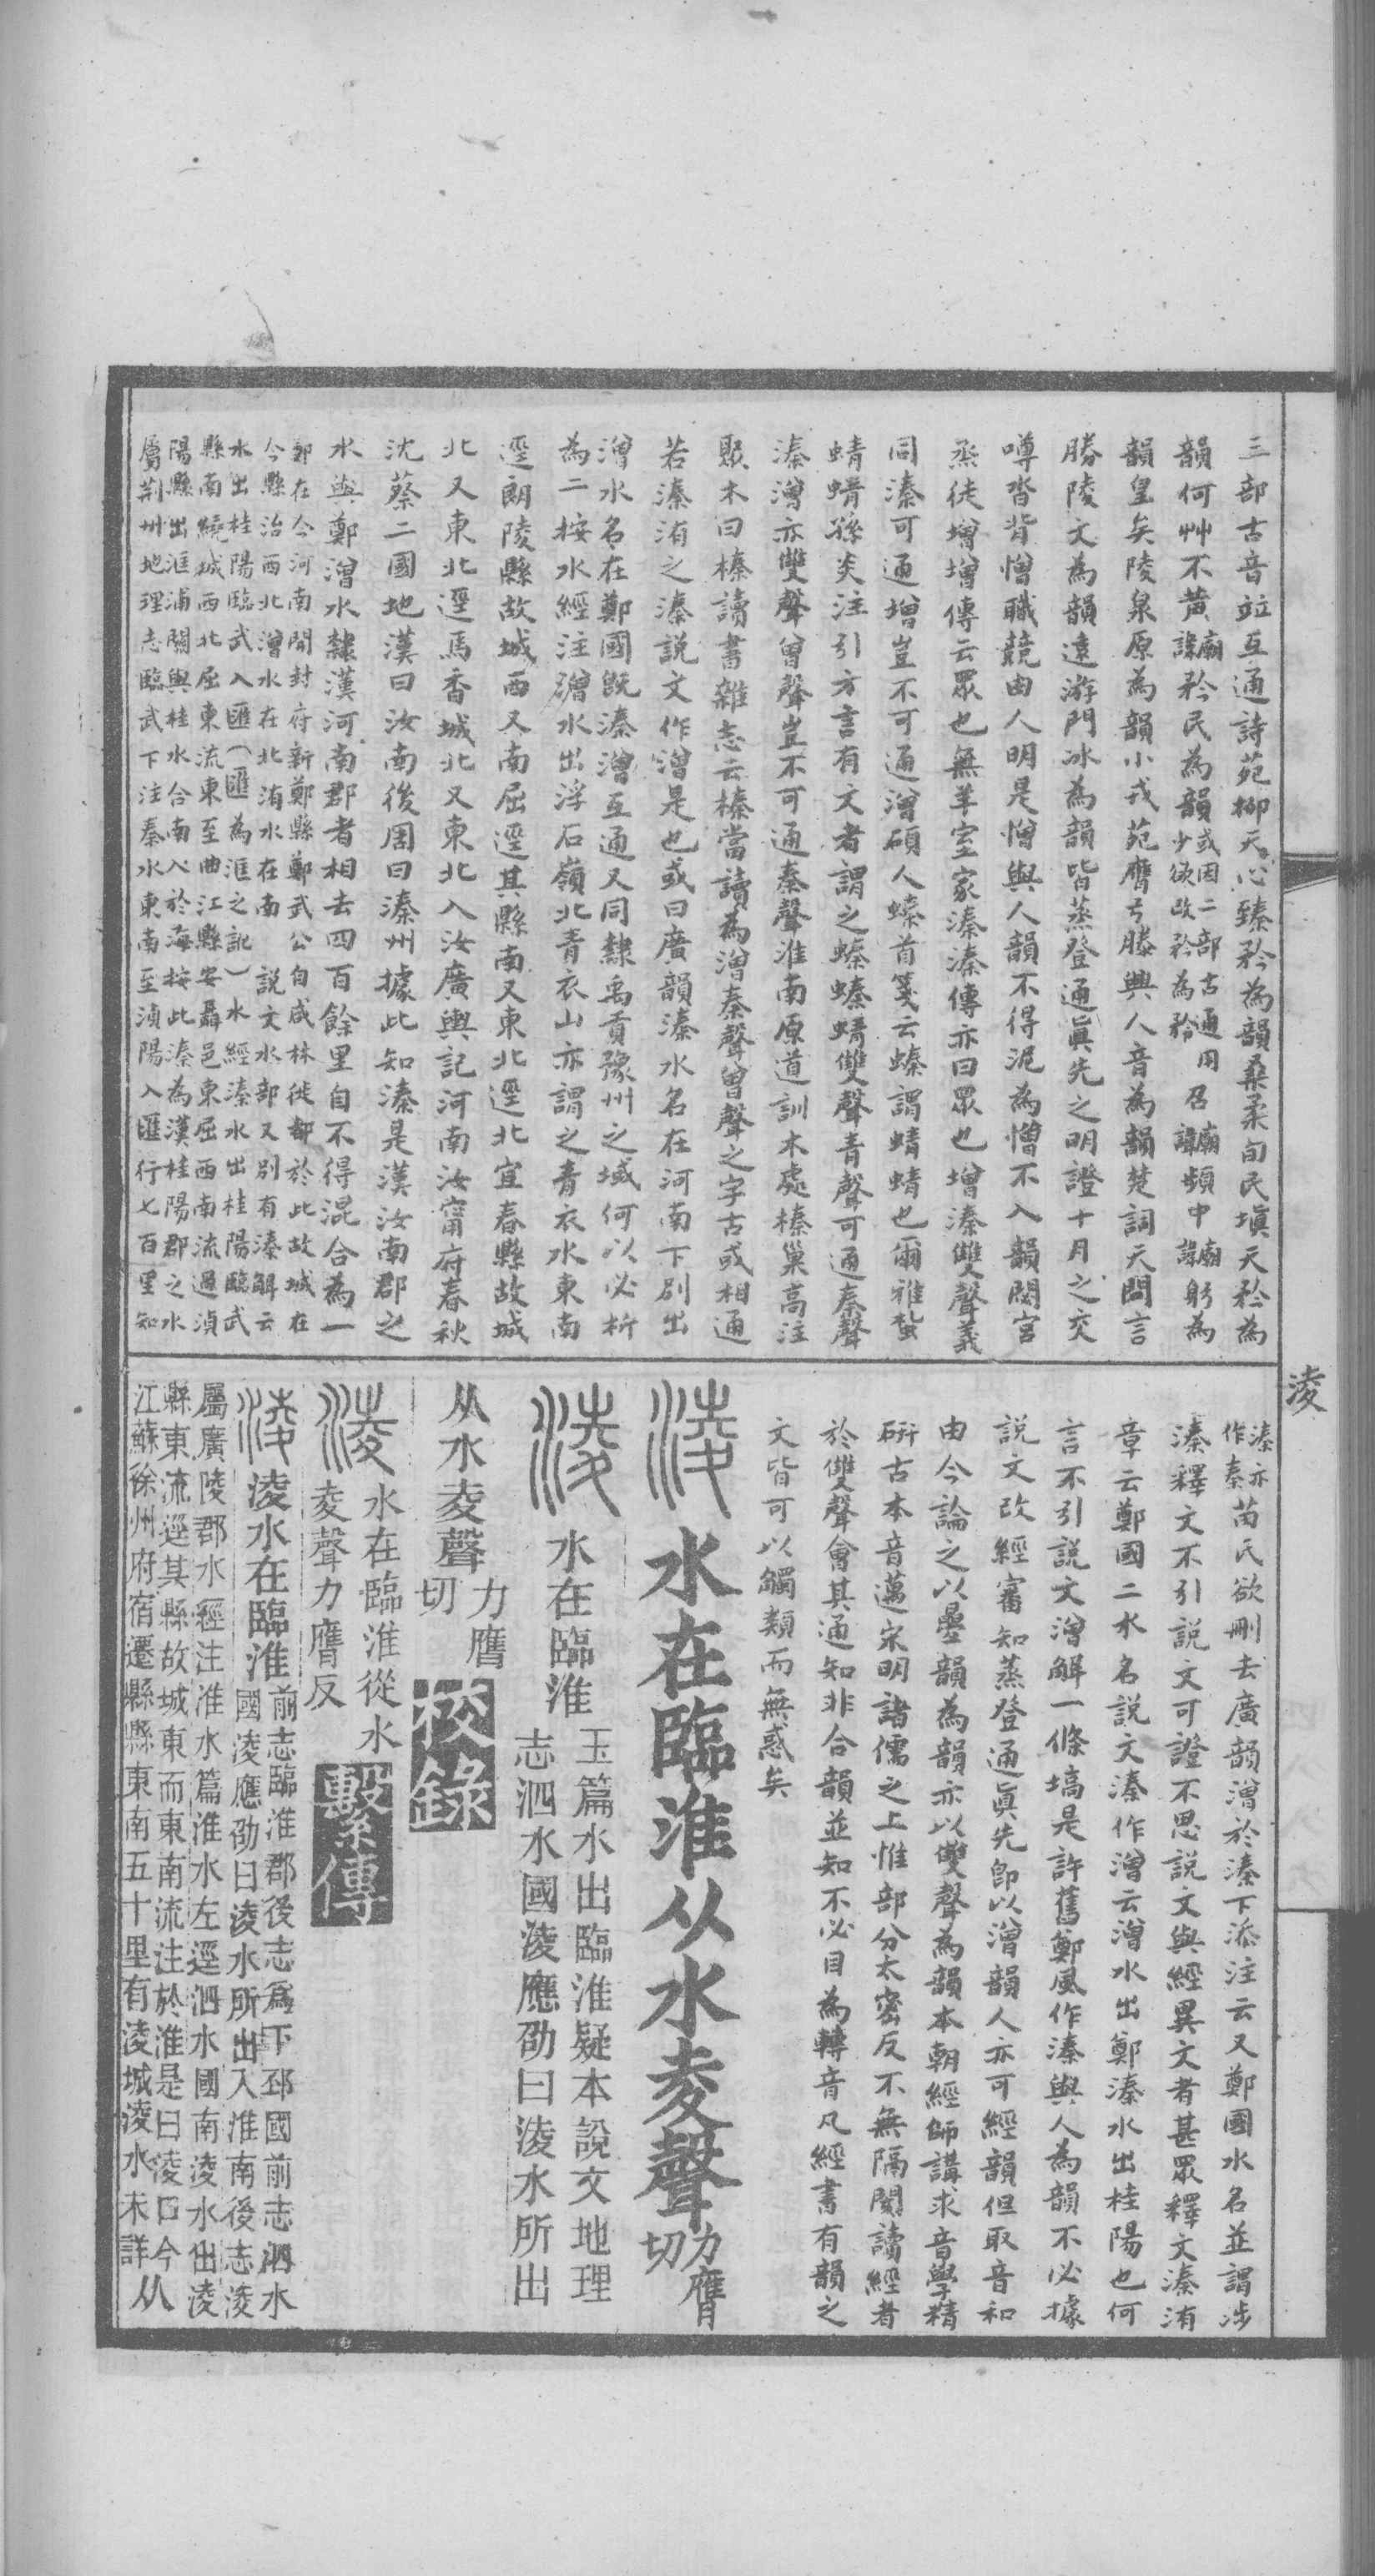 三部古音竝互通詩菀柳天心臻矜為韻桑柔旬民塡天矜為
韻何艸不黄矜民為韻或因二部古通用少欲改矜為矝召頻中躬為
韻皇矣陵泉原為韻小戎苑膺弓縢興人音為韻楚詞天問言
勝陵文為韻遠游門冰為韻皆蒸登通眞先之明證十月之交
噂沓背憎職競由人明是憎與人韻不得泥為憎不入韻閟宮
烝徒增增傳云眾也無羊室家溱溱傳亦曰眾也增溱雙聲義
同溱可通增豈不可通潧碩人螓首箋云螓謂蜻蜻也爾雅蚻
蜻蜻孫炎注引方言有文者謂之螓螓蜻雙聲青聲可通秦聲
溱潧亦雙聲曾聲豈不可通秦聲淮南原道訓木處榛巢高注
聚木曰榛讀書雜志云榛當讀為潧秦聲曾聲之字古或相通
若溱洧之溱説文作潧是也或曰廣韻溱水名在河南下別出
潧水名在鄭國旣溱潧互通又同隸禹貢豫州之域何以必析
為二按水經注潧水出浮石嶺北青衣山亦謂之青衣水東南
逕朗陵縣故城西又南屈逕其縣南又東北逕北宜春縣故城
北又東北逕馬香城北又東北入汝廣輿記河南汝甯府春秋
沈蔡二國地漢曰汝南後周曰溱州據此知溱是漢汝南郡之
水與鄭潧水隸漢河南郡者相去四百餘里自不得混合為一
鄭在今河南開封府新鄭縣鄭武公自咸林徙都於此故城在
今縣治西北潧水在北洧水在南説文水部又別有溱解云
水出桂陽臨武入匯（匯為洭之訛）水經溱水出桂陽臨武
縣南繞城西北屈東流東至曲江縣安聶邑東屈西南流過湞
陽縣出洭浦關與桂水合南入於海按此溱為漢桂陽郡之水
屬荆州地理志臨武下注秦水東南至湞陽入匯行七百里知
溱亦作秦苗氏欲刪去廣韻潧於溱下添注云又鄭國水名並謂涉
溱釋文不引説文可證不思説文與經異文者甚眾釋文溱洧
章云鄭國二水名説文溱作潧云潧水出鄭溱水出桂陽也何
言不引説文潧解一條塙是許舊鄭風作溱與人為韻不必據
説文改經審知蒸登通眞先即以潧韻人亦可經韻但取音和
由今論之以疊韻為韻亦以雙聲為韻本朝經師講求音學精
研古本音邁宋明諸儒之上惟部分太密反不無隔閡讀經者
於雙聲會其通知非合韻並知不必目為轉音凡經書有韻之
文皆可以觸類而無惑矣
淩 水在臨淮从水夌聲力膺切
淩 水在臨淮玉篇水出臨淮疑本說文地理志泗水國淩應劭曰淩水所出
从水夌聲力膺切 校錄
淩 水在臨淮從水夌聲力膺反 繫傳
淩 淩水在臨淮前志臨淮郡後志為下邳國前志泗水國淩應劭曰淩水所出入淮南後志淩
屬廣陵郡水經注淮水篇淮水左逕泗水國南淩水出淩
縣東流逕其縣故城東而東南流注於淮是曰淩口今
江蘇徐州府宿遷縣縣東南五十里有淩城淩水未詳从
淩